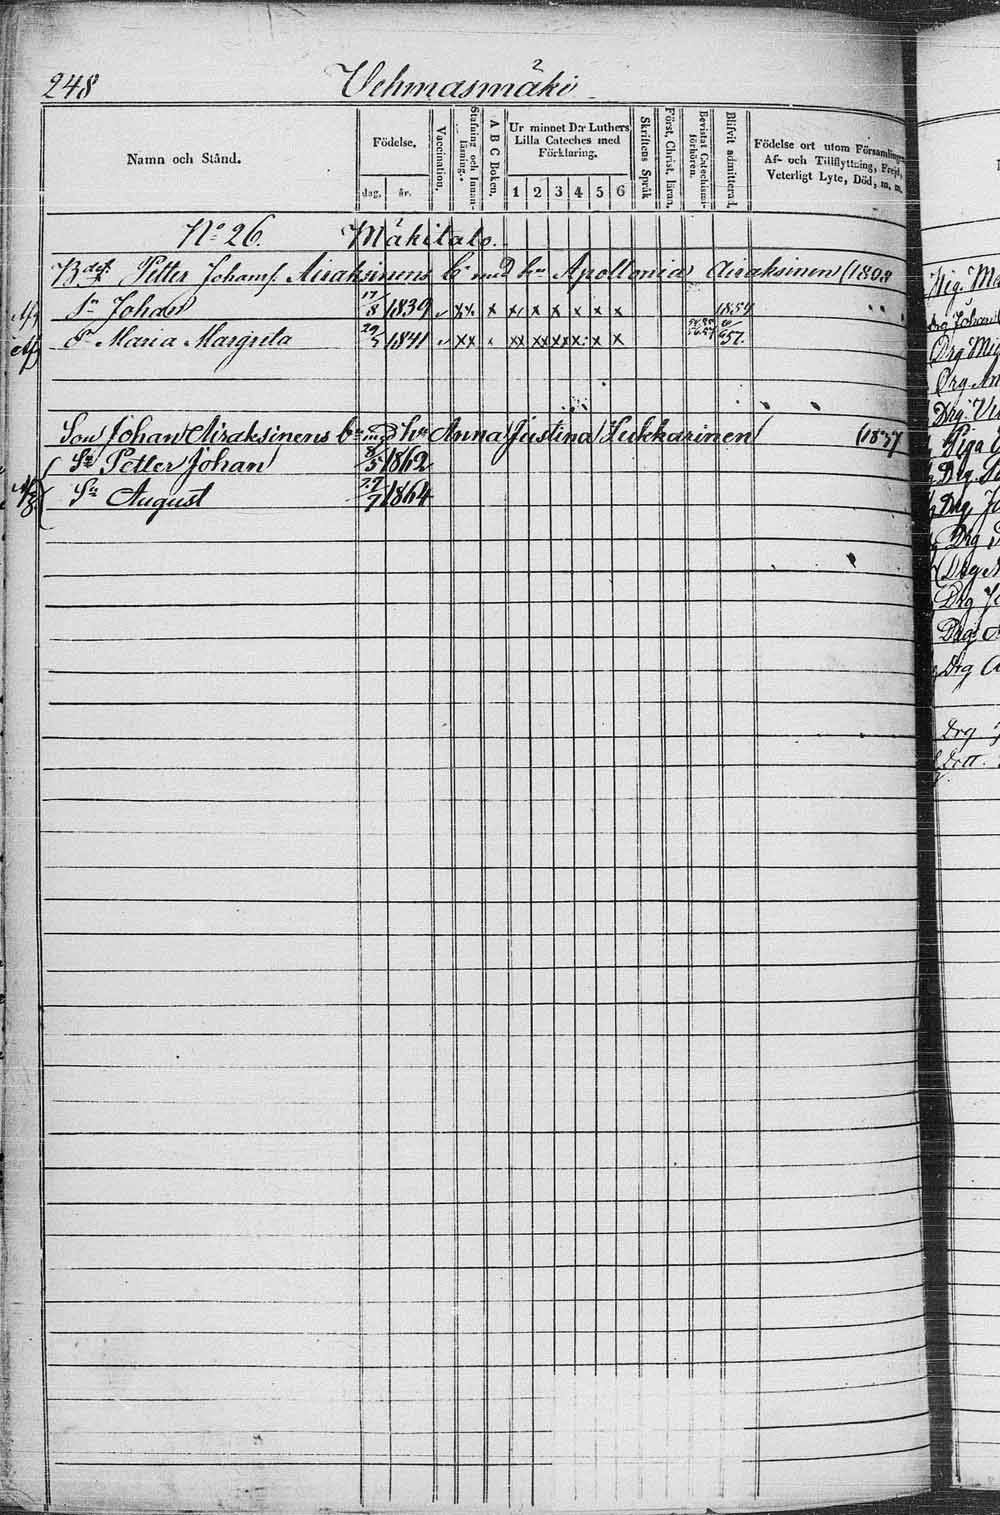 248 Vehmasmäki 2
Namn och Stånd.
Födelse.
dag. år.
Vaccination.
Stafning och Innan-
läsning.
A B C Boken.
Ur minnet D:r Luthers
Lilla Cateches med
Förklaring.
1 2 3 4 5 6
Skriftens Språk
Först. Christ. läran.
Bevistat Catechismi-
förhören.
Blifvit admitterad.
Födelse ort utom Församlingen,
Af- och Tillflyttning, Frejd,
Veterligt Lyte, Död, m. m.
No 26. Mäkitalo.
Petter Johans. Airaksinens b. med hu Apollonia Airaksinen (1808
Sn Johan 17/8 1839 xx x x x x x x x 1859
Dr Maria Margreta 1841 xx x xx xx xx x x x 57.
Son Johan Airaksinens bn med hu Anna Justina Lukkarinen (1837
Sn Petter Johan 8/5 1862
Sn August 27/7 1864